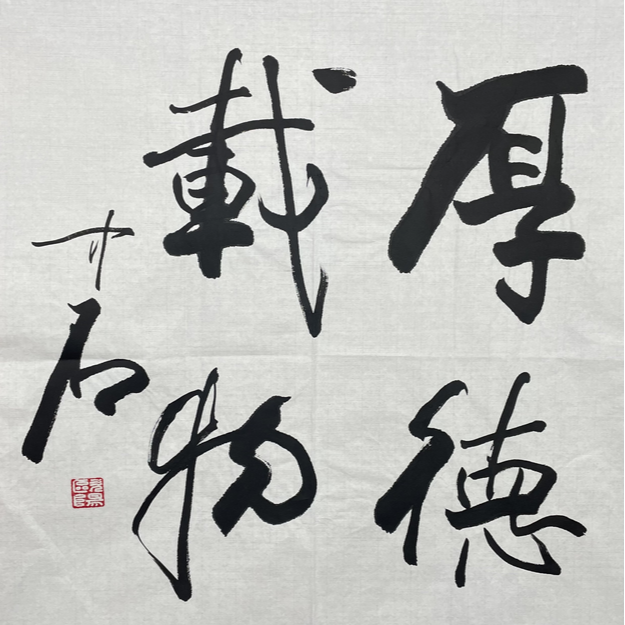 厚德
載物
中石